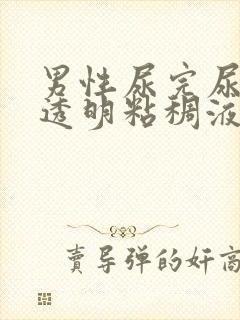 男性尿完尿
透明粘稠液
賣导弹的奸商